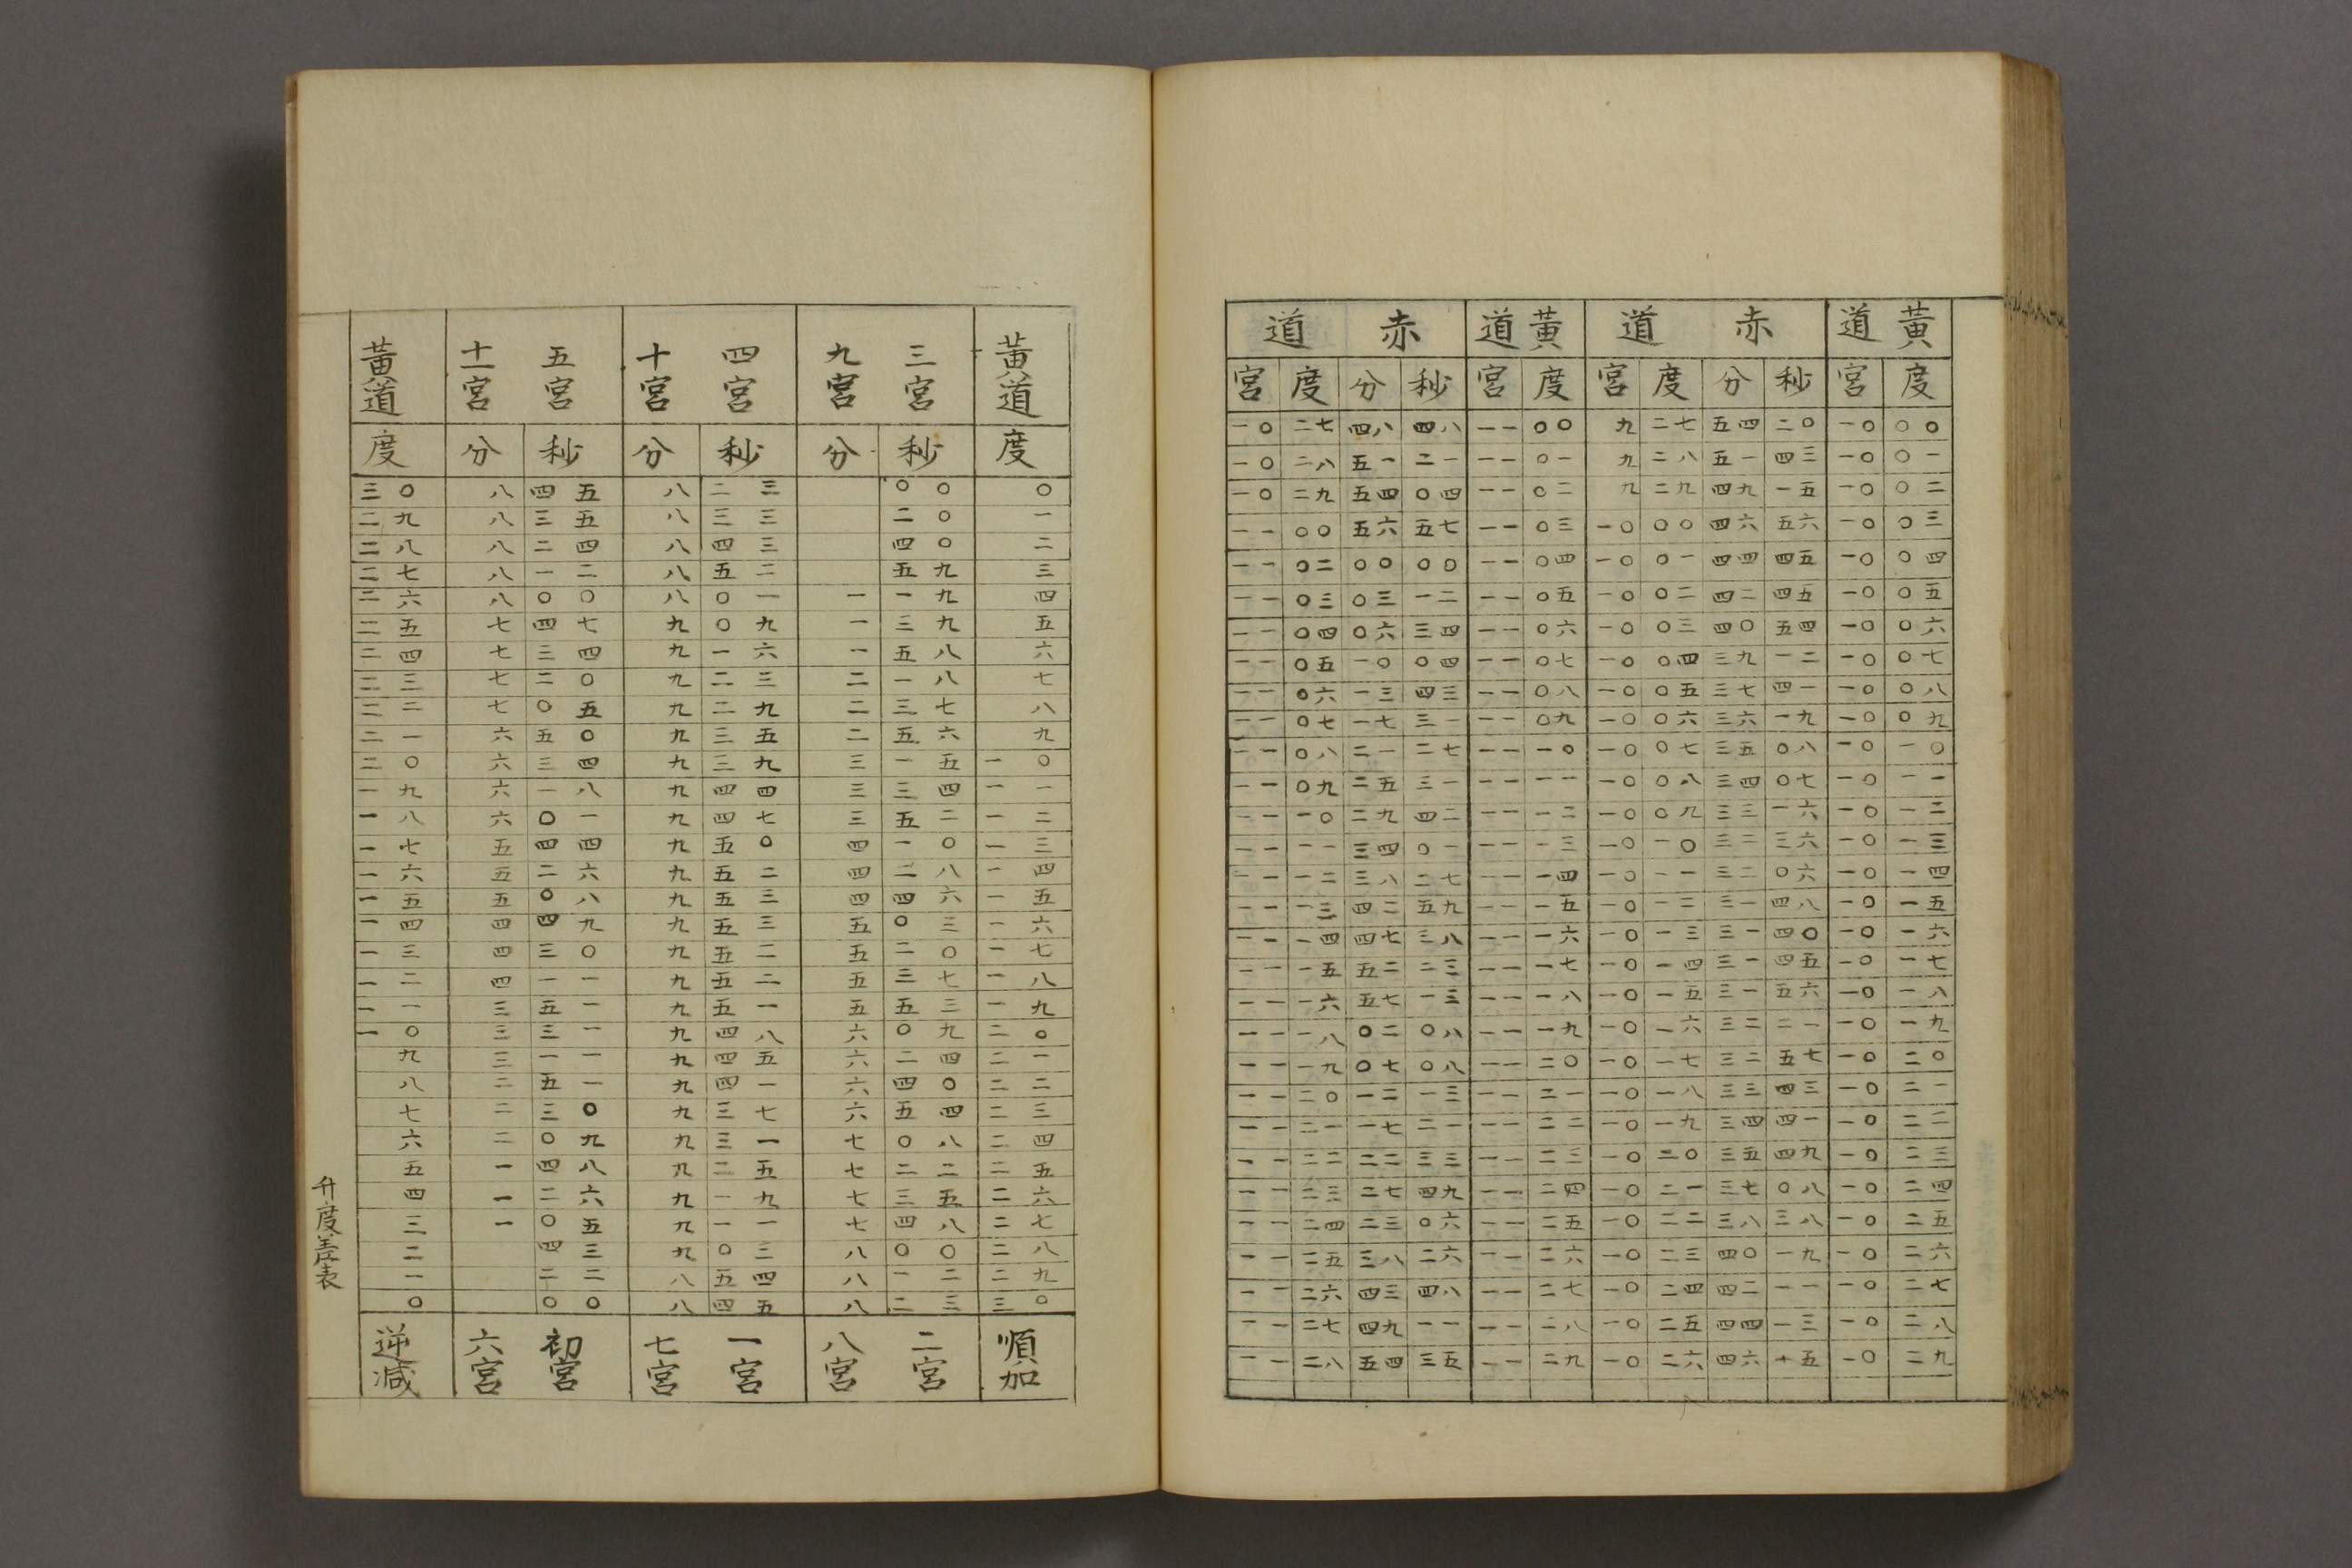 黃道 赤道 黃道 赤道
度 宮 秒 分 度 宮 度 宮 秒 分 度 宮
〇〇 一〇 二〇 五四 二七 九 〇〇 一一 四八 四八 二七 一〇
〇一 一〇 四三 五一 二八 九 〇一 一一 二一 五一 二八 一〇
〇二 一〇 一五 四九 二九 九 〇二 一一 〇四 五四 二九 一〇
〇三 一〇 五六 四六 〇〇 一〇 〇三 一一 五七 五六 〇〇 一一
〇四 一〇 四五 四四 〇一 一〇 〇四 一一 〇〇 〇〇 〇二 一一
〇五 一〇 四五 四二 〇二 一〇 〇五 一一 一二 〇三 〇三 一一
〇六 一〇 五四 四〇 〇三 一〇 〇六 一一 三四 〇六 〇四 一一
〇七 一〇 一二 三九 〇四 一〇 〇七 一一 〇四 一〇 〇五 一一
〇八 一〇 四一 三七 〇五 一〇 〇八 一一 四三 一三 〇六 一一
〇九 一〇 一九 三六 〇六 一〇 〇九 一一 三一 一七 〇七 一一
一〇 一〇 〇八 三五 〇七 一〇 一〇 一一 二七 二一 〇八 一一
一一 一〇 〇七 三四 〇八 一〇 一一 一一 三一 二五 〇九 一一
一二 一〇 一六 三三 〇九 一〇 一二 一一 四二 二九 一〇 一一
一三 一〇 三六 三二 一〇 一〇 一三 一一 〇一 三四 一一 一一
一四 一〇 〇六 三二 一一 一〇 一四 一一 二七 三八 一二 一一
一五 一〇 四八 三一 一二 一〇 一五 一一 五九 四二 一三 一一
一六 一〇 四〇 三一 一三 一〇 一六 一一 三八 四七 一四 一一
一七 一〇 四五 三一 一四 一〇 一七 一一 二三 五二 一五 一一
一八 一〇 五六 三一 一五 一〇 一八 一一 一三 五七 一六 一一
一九 一〇 二一 三二 一六 一〇 一九 一一 〇八 〇二 一八 一一
二〇 一〇 五七 三二 一七 一〇 二〇 一一 〇八 〇七 一九 一一
二一 一〇 四三 三三 一八 一〇 二一 一一 一三 一二 二〇 一一
二二 一〇 四一 三四 一九 一〇 二二 一一 二一 一七 二一 一一
二三 一〇 四九 三五 二〇 一〇 二三 一一 三三 二二 二二 一一
二四 一〇 〇八 三七 二一 一〇 二四 一一 四九 二七 二三 一一
二五 一〇 三八 三八 二二 一〇 二五 一一 〇六 二三 二四 一一
二六 一〇 一九 四〇 二三 一〇 二六 一一 二六 三八 二五 一一
二七 一〇 一一 四二 二四 一〇 二七 一一 四八 四三 二六 一一
二八 一〇 一三 四四 二五 一〇 二八 一一 一一 四九 二七 一一
二九 一〇 十五 四六 二六 一〇 二九 一一 三五 五四 二八 一一
黃道 三宮 九宮 四宮 十宮 五宮 十一宮 黃道
度 秒 分 秒 分 秒 分 度
〇 〇〇 二三 八 四五 八 三〇
一 二〇 三三 八 三五 八 二九
二 四〇 四三 八 二四 八 二八
三 五九 五二 八 一二 八 二七
四 一九 一 〇一 八 〇〇 八 二六
五 三九 一 〇九 九 四七 七 二五
六 五八 一 一六 九 三四 七 二四
七 一八 二 二三 九 二〇 七 二三
八 三七 二 二九 九 〇五 七 二二
九 五六 二 三五 九 五〇 六 二一
一〇 一五 三 三九 九 三四 六 二〇
一一 三四 三 四四 九 一八 六 一九
一二 五二 三 四七 九 〇一 六 一八
一三 一〇 四 五〇 九 四四 五 一七
一四 二八 四 五二 九 二六 五 一六
一五 四六 四 五三 九 〇八 五 一五
一六 〇三 五 五三 九 四九 四 一四
一七 二〇 五 五二 九 三〇 四 一三
一八 三七 五 五二 九 一一 四 一二
一九 五三 五 五一 九 五一 三 一一
二〇 〇九 六 四八 九 三一 三 一〇
二一 二四 六 四五 九 一一 三 九
二二 四〇 六 四一 九 五一 二 八
二三 五四 六 三七 九 三〇 二 七
二四 〇八 七 三一 九 〇九 二 六
二五 二二 七 二五 九 四八 一 五
二六 三五 七 一九 九 二六 一 四
二七 四八 七 一一 九 〇五 一 三
二八 〇〇 八 〇三 九 四三 二
二九 一二 八 五四 八 二二 一
三〇 二三 八 四五 八 〇〇 〇
順加 二宮 八宮 一宮 七宮 初宮 六宮 逆減
升度差表